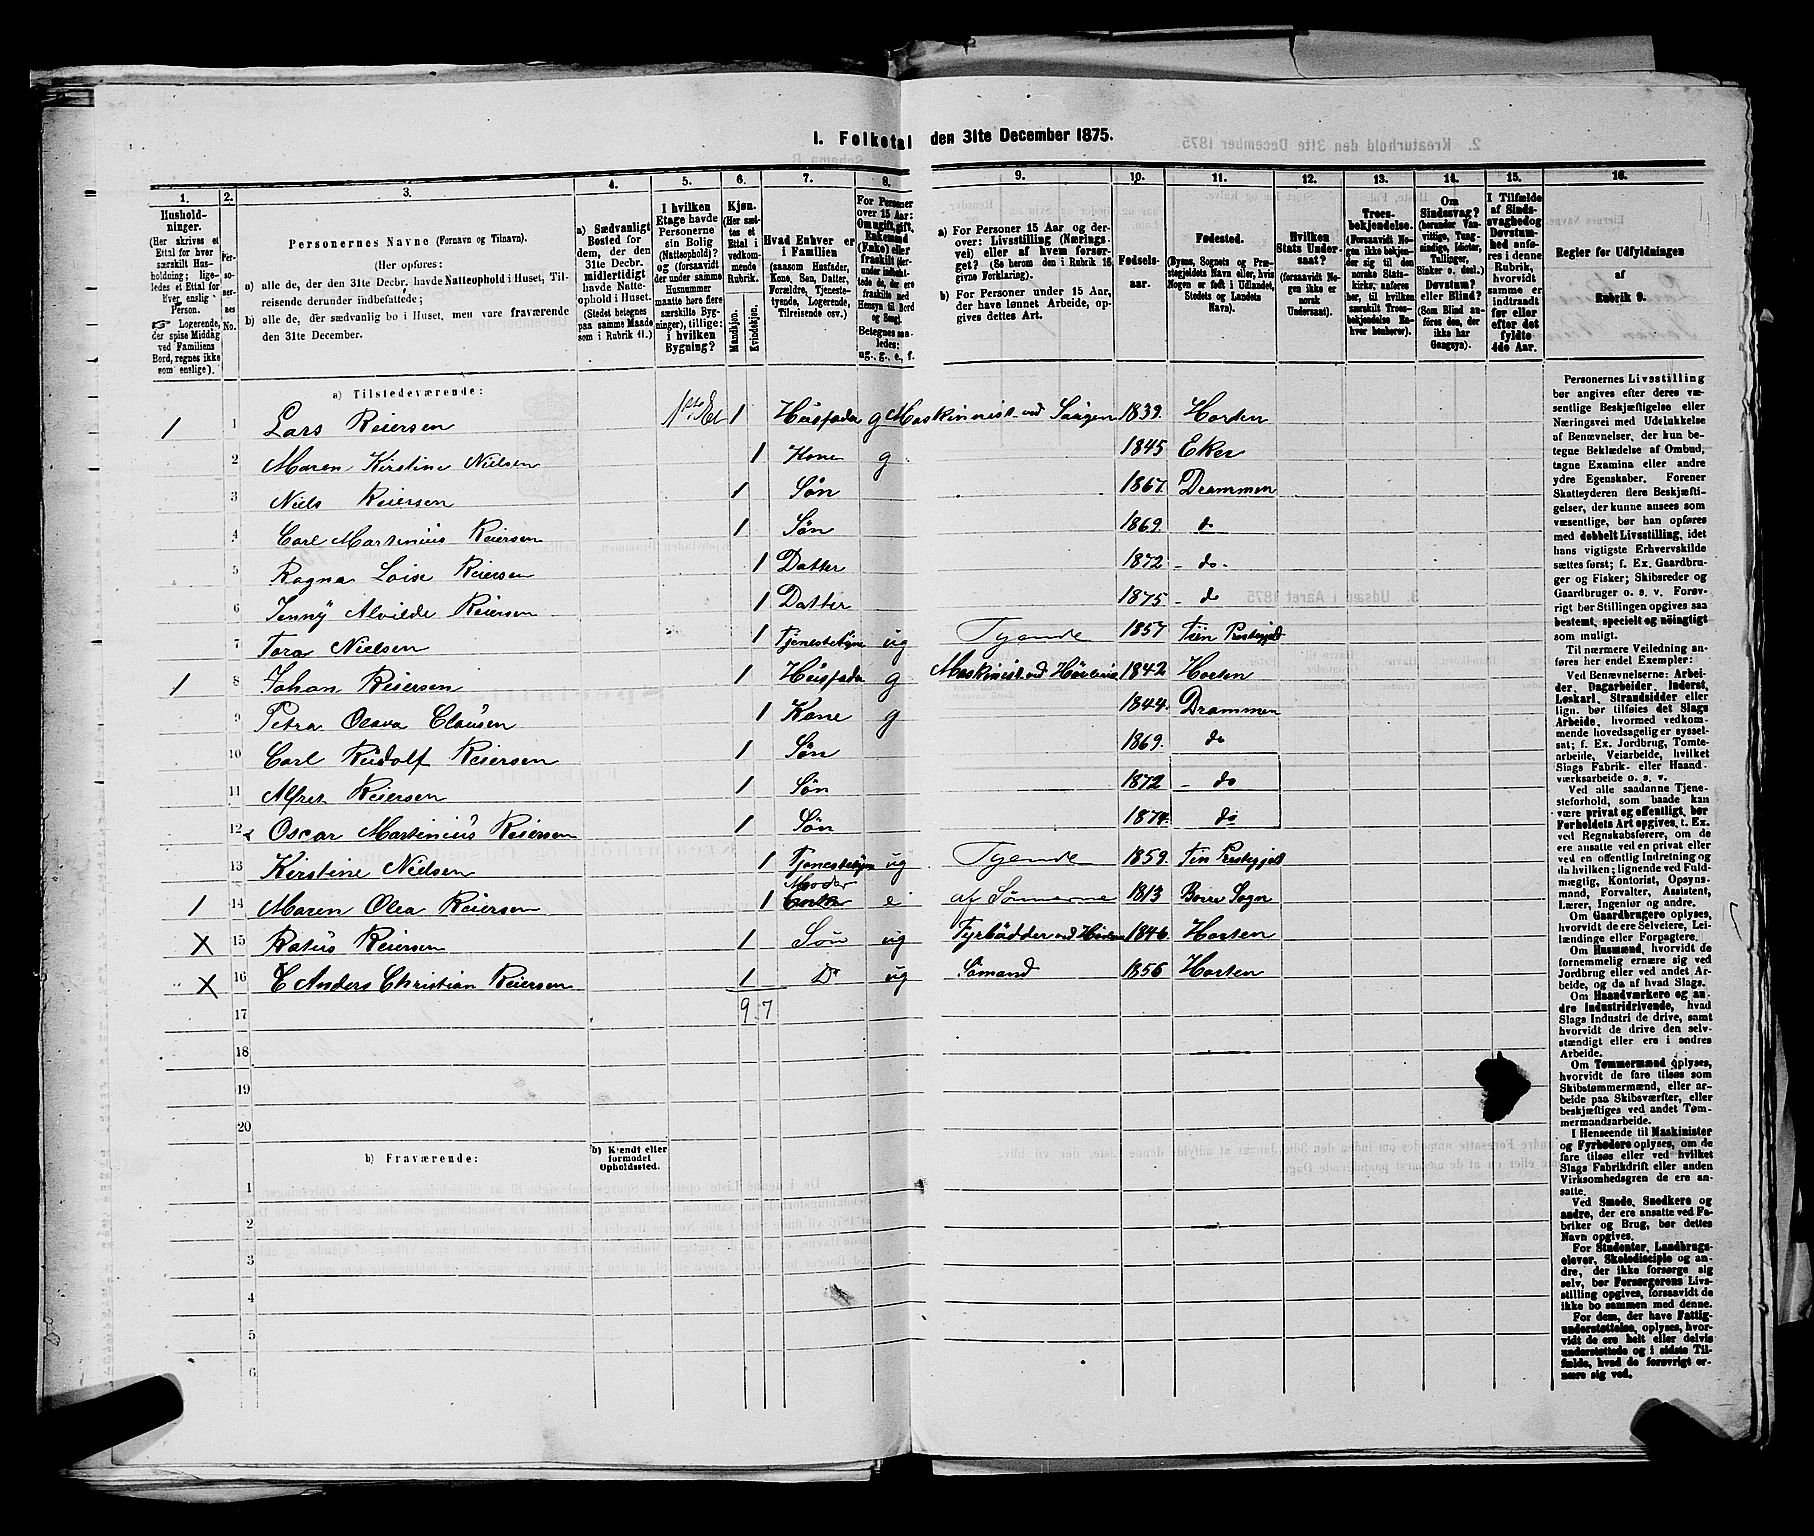 1. Folketal den 31te December 1875.
1. 2. 3. 4. 5. 6. 7. 8. 9. 10. 11. 12. 13. 14. 15. 16.
Husholdninger.
(Her skrives et Ettal for hver særskilt Husholdning; ligeledes et Ettal for hver enslig Person.
☞ Logerende, der spise Middag ved Familiens Bord, regnes ikke som enslige).
Personernes No.
Personernes Navne (Fornavn og Tilnavn).
(Her opføres:
a) alle de, der den 31te Decbr. havde Natteophold i Huset, Tilreisende derunder indbefattede;
b) alle de, der sædvanlig bo i Huset, men vare fraværende den 31te December.
a) Sædvanligt Bosted for dem, der den 31te Decbr. midlertidigt havde Natteophold i Huset. (Stedet betegnes paa samme Maade som i Rubrik 11.)
I hvilken Etage havde Personerne sin Bolig (Natteophold)? og (forsaavidt der under samme Husnummer maatte høre flere særskilte Bygninger), tillige: i hvilken Bygning?
Kjøn. (Her sættes et Ettal i vedkommende Rubrik.
Mandkjøn. Kvindekjøn.
Hvad Enhver er i Familien (saasom Husfader, Kone, Søn, Datter, Forældre, Tjenestetyende, Logerende, Tilreisende osv.)
For Personer over 15 Aar: Om ugift, gift, Enkemand (Enke) eller fraskilt
Betegnes saaledes: ug., g., e., f.
a) For Personer 15 Aar og derover: Livsstilling (Næringsvei) eller af hvem forsørget? (Se herom den i Rubrik 16 givne Forklaring).
b) For Personer under 15 Aar, der have lønnet Arbeide, opgives dettes Art.
Fødselsaar.
Fødested.
(Byens, Sognets og Præstegjeldets Navn eller, hvis Nogen er født i Udlandet, Stedets og Landets Navn).
Hvilken Stats Undersaat? (forsaavidt Nogen ikke er norsk Undersaat).
Troesbekjendelse. (Forsaavidt Nogen ikke bekjender sig til den norske Statskirke, anføres her, til hvilken særskilt Troesbekjendelse Enhver henhører).
Om Sindssvag? (herunder Vanvittige, Tungsindige, Idioter, Tullinger, Sinker o. desl.) Døvstum? eller Blind? (Som Blind anføres den, der ikke har Gangsyn).
I Tilfælde af Sindssvaghed og Døvstumhed anføres i denne Rubrik, hvorvidt samme er indtraadt før eller efter det fyldte 4de Aar.
Regler for Udfyldningen af Rubrik 9.
a) Tilstedeværende:
1 1 Lars Reiersen 1ste Et 1 Husfader g Maskinnist ved Saugen 1839. Horten
2 Maren Kirstine Nielsen 1 Kone g 1845 Eker
3 Niels Reiersen 1 Søn 1867. Drammen
4 Carl Martinius Reiersen 1 Søn 1869. do
5 Ragna Loise Reiersen 1 Datter 1872 - do -
6 Jenny Alvilde Reiersen 1 Datter 1875 - do
7 Tora Nielsen 1 ug Tyende 1857 Tin Prestegjeld
1 8 Johan Reiersen 1 Husfader g Maskinist ved Høvlerie 1842 Horten
9 Petra Olava Clausen 1 Kone g 1844. Drammen
10 Carl Rudolf Reiersen 1 Søn 1869. do
11 Alfret Reiersen 1 Søn 1872 - do
12 Oscar Martinius Reiersen 1 Søn 1874. do
13 Kirstine Nielsen 1 ug Tyende 1859. Tin Prestegjeld
1 14 Maren Olea Reiersen 1 Moder e af Sønnerne 1813 Borre Sogn
X 15 Ratus Reiersen 1 Søn ug Fyrbødder ved 1846. Horten
X 16 Anders Christian Reiersen 1 Do ug Sømand 1856 Horten
17 9 7
18
19
20
b) Fraværende:
b) Kjendt eller formodet Opholdssted.
1
2
3
4
5
6
Personernes Livsstilling bør angives efter deres væsentlige Beskjæftigelse eller Næringsvei med Udelukkelse af Benævnelser, der kun betegne Beklædelse af Ombud, tagne Examina eller andre ydre Egenskaber. Forener Skatteyderen flere Beskjæftigelser, der kunne ansees som væsentlige, bør han opføres med dobbelt Livsstilling, idet hans vigtigste Erhvervskilde sættes først; f. Ex. Gaardbruger og Fisker; Skibsreder og Gaardbruger o. s. v. Forøvrigt bør Stillingen opgives saa bestemt, specielt og nøiagtigt som muligt.
Til nærmere Veiledning anføres her endel Exempler:
Ved Benævnelserne: Arbeider, Dagarbeider, Inderst, Løskarl, Strandsidder eller lign. bør tilføies det Slags Arbeide, hvormed vedkommende hovedsagelig er sysselsat; f. Ex. Jordbrug, Tomtearbeide, Veiarbeide, hvilket Slags Fabrik- eller Haandværksarbeide o. s. v.
Ved alle saadanne Tjenesteforhold, som baade kan være privat og offentligt, bør Forholdets Art opgives, t. Ex. ved Regnskabsførere, om de ere ansatte ved en privat eller ved en offentlig Indretning og da hvilken; lignende ved Fuldmægtig, Kontorist, Opsynsmand, Forvalter, Assistent, Lærer, Ingeniør og andre.
Om Gaardbrugere oplyses, hvorvidt de ere Selveiere, Leilændinge eller Forpagtere.
Om Husmænd, hvorvidt de fornemmelig ernære sig ved Jordbrug eller ved andet Arbeide, og da af hvad Slags.
Om Haandværkere og andre Industridrivende, hvad Slags Industri de drive, samt hvorvidt de drive den selvstændigt eller ere i andres Arbeide.
Om Tømmermænd oplyses, hvorvidt de fare tilsøs som Skibstømmermænd, eller arbeide paa Skibsværfter, eller beskjæftiges ved andet Tømmermandsarbeide.
I Henseende til Maskinister og Fyrbødere oplyses, om de fare tilsøs eller ved hvilket Slags Fabrikdrift eller anden Virksomhedsgren de ere ansatte.
Ved Smede, Snedkere og andre, der ere ansatte ved Fabriker og Brug, bør dettes Navn opgives.
For Studenter, Landbrugselever, Skoledisciple og andre, der ikke forsørge sig selv, bør Forsørgerens Livsstilling opgives, forsaavidt de ikke bo sammen med denne.
For dem, der have Fattigunderstøttelse, oplyses, hvorvidt de ere helt eller delvis understøttede og i sidste Tilfælde, hvad de forøvrigt ernære sig ved.